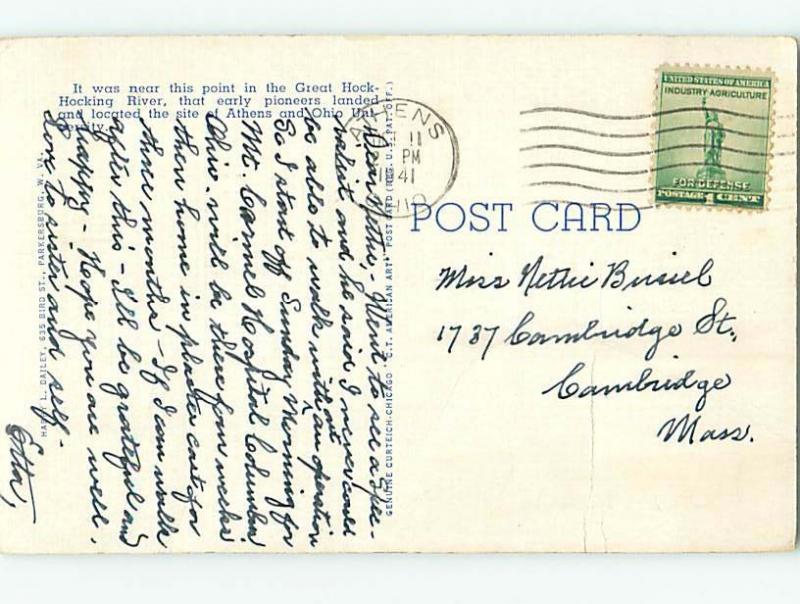 It was near this point in the Great Hock-
Hocking River, that early pioneers landed
and located the site of Athens and Ohio Uni-
versity.
Dear Nettie, - Went to see a Spec-
ialist and he said I never could
be able to walk without an operation
So I start off Sunday Morning for
Mt. Carmel Hospital Columbus
Ohio. will be there four weeks
then home in plaster cast for
three months - If I can walk
after this - I'll be grateful and
happy - Hope you are well,
Love to sister and self -
Etta,
HARRY L. DAILEY, 635 BIRD ST., PARKERSBURG, W. VA.
GENUINE CURTEICH-CHICAGO "C.T. AMERICAN ART" POST CARD (REG. U.S. PAT. OFF.)
ATHENS
11
PM
41
OHIO
UNITED STATES OF AMERICA
INDUSTRY AGRICULTURE
FOR DEFENSE
POSTAGE 1 CENT
POST CARD
Miss Nettie Busiel
1737 Cambridge St.,
Cambridge
Mass.